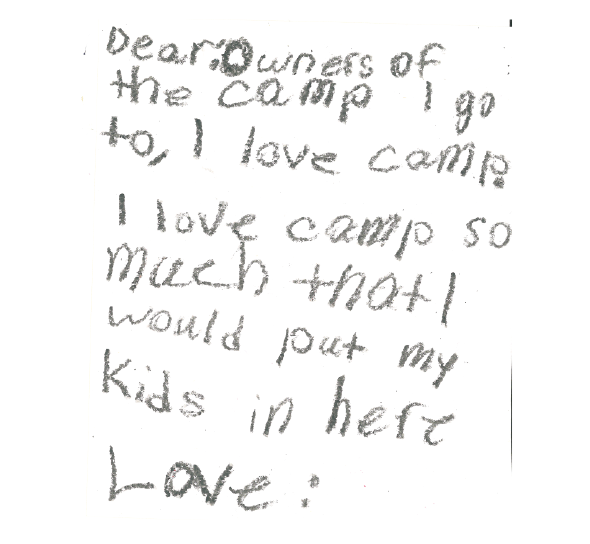 Dear: Owners of
the camp I go
to, I love camp.
I love camp so
much that I
would put my
Kids in here
Love: